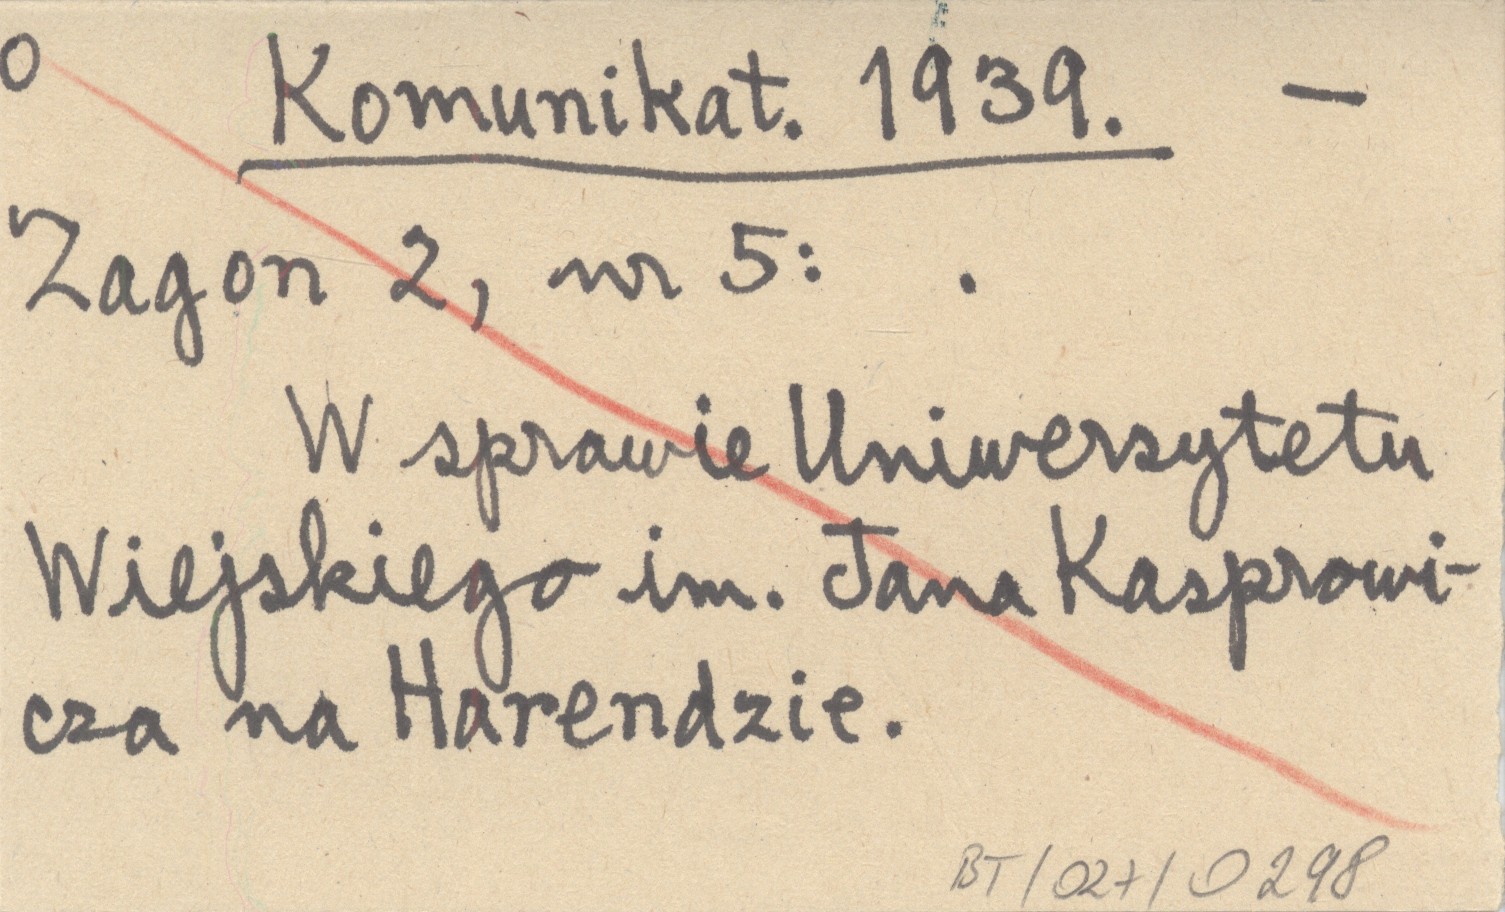 o Komunikat. 1939. —
Zagon 2, nr 5: .
W sprawie Uniwersytetu
Wiejskiego im. Jana Kasprowi-
cza na Harendzie.
BT/027/0298